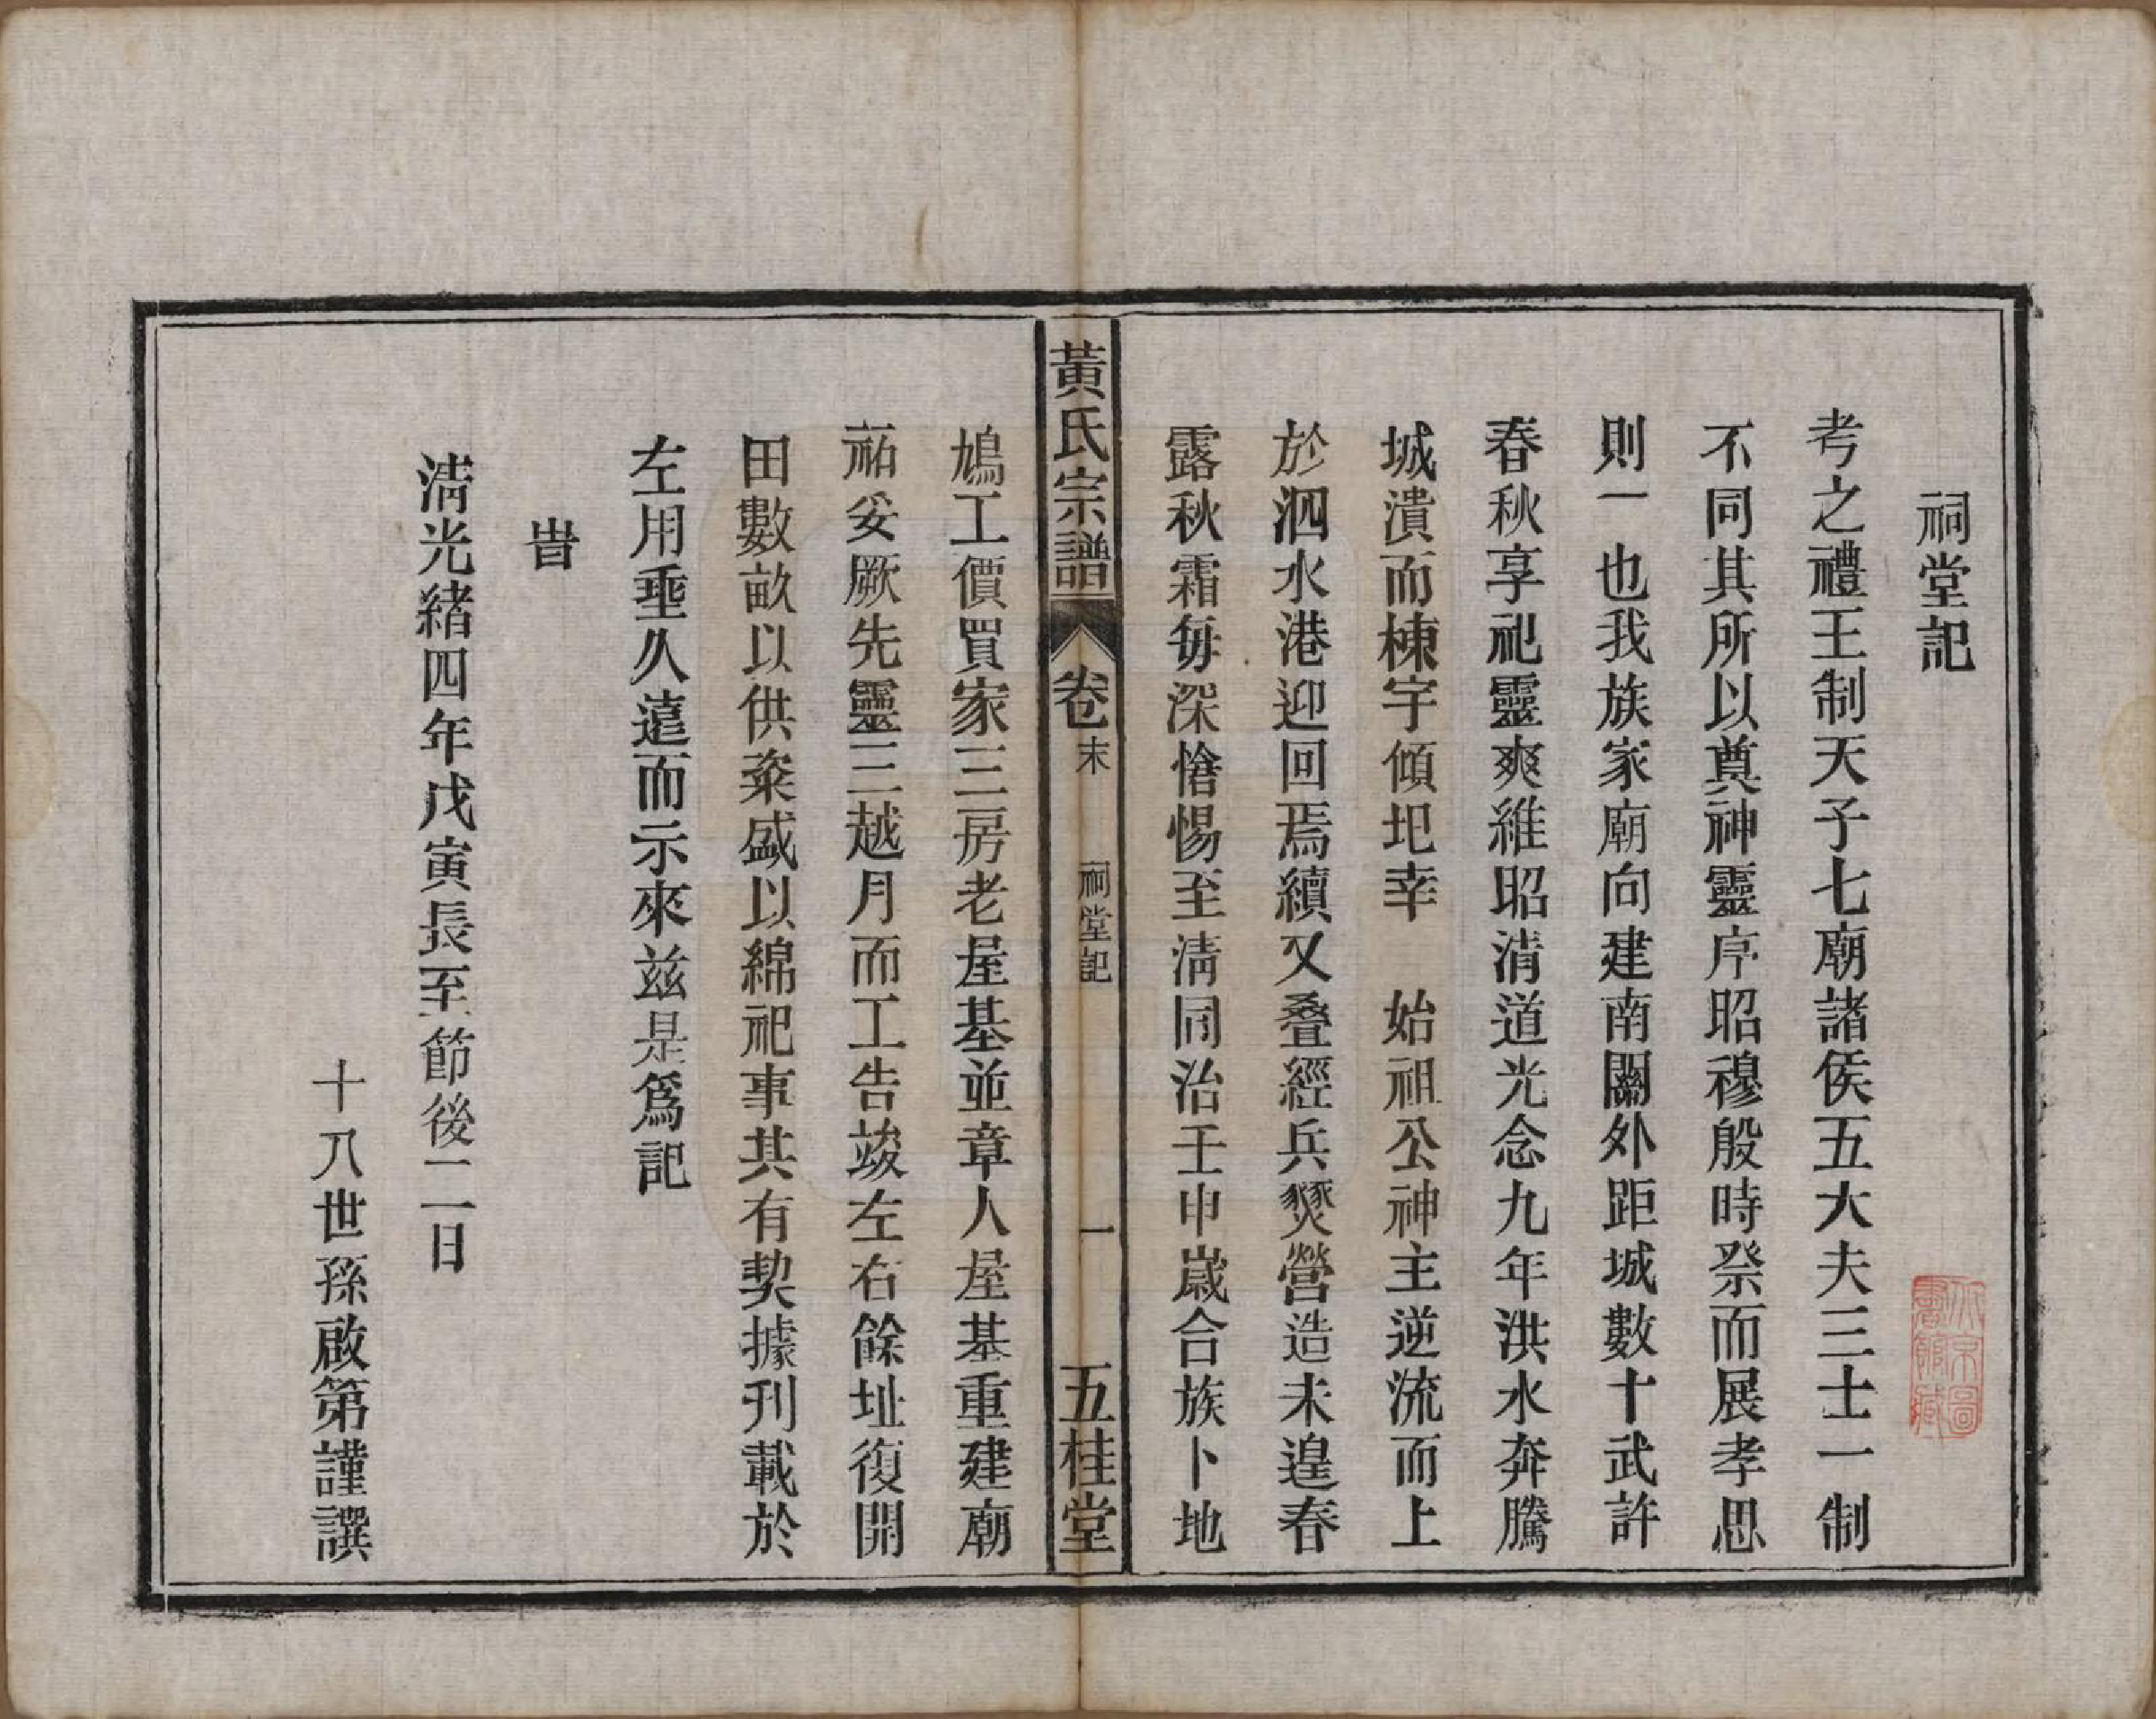 祠堂記
考之禮王制天子七廟諸侯五大夫三士一制
不同其所以奠神靈序昭穆殷時祭而展孝思
則一也我族家廟向建南關外距城數十武許
春秋享祀靈爽維昭清道光念九年洪水奔騰
城潰而棟宇傾圯幸　始祖公神主逆流而上
於泗水港迎回焉續又叠經兵燹營造未遑春
露秋霜每深愴惕至清同治壬申歲合族卜地
黃氏宗譜
卷末
祠堂記
一
五桂堂
鳩工價買家三房老屋基並章人屋基重建廟
祏妥厥先靈三越月而工告竣左右餘址復開
田數畝以供粢盛以綿祀事共有契據刊載於
左用垂久遠而示來兹是爲記
旹
清光緒四年戊寅長至節後二日
十八世孫啟第謹譔
北京圖
書館藏